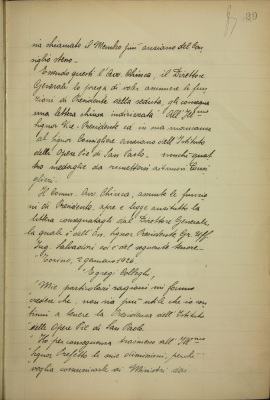 29
sia chiamato il Membro più anziano del Con-
siglio stesso.
Essendo questi l'Avv. Chinea, il Direttore
Generale lo prega di voler assumere le fun-
zioni di Presidente della seduta, gli consegna
una lettera chiusa indirizzata: "All'Ill.mo
Signor Vice-Presidente ed in sua mancanza
al Signor Consigliere anziano dell'Istituto
delle Opere Pie di San Paolo," nonchè quat-
tro medaglie da rimettersi ai Consi-
glieri.
Il Comm. Avv. Chinea, assunte le funzio-
ni di Presidente, apre e legge anzitutto la
lettera consegnatagli dal Direttore Generale,
la quale è dell'On. Signor Presidente Gr. Uff.
Ing. Salvadori ed è del seguente tenore
Torino, 2 gennaio 1926
"Egregi Colleghi,
"Mie particolari ragioni mi fanno
credere che non sia più utile che io con-
tinui a tenere la Presidenza dell'Istituto
delle Opere Pie di San Paolo.
"Ho per conseguenza trasmesso all'Ill.mo
Signor Prefetto le mie dimissioni, perchè
voglia comunicarle ai Ministri dai